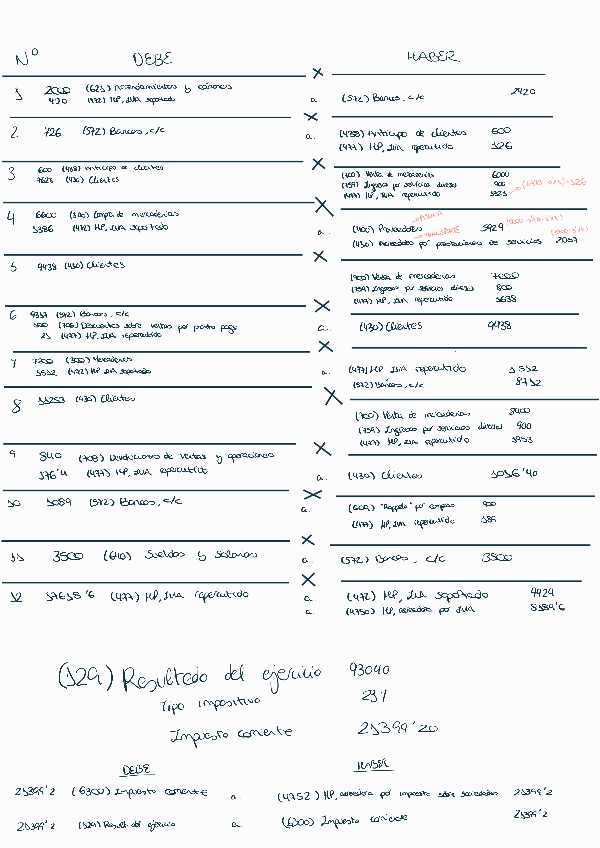 Nº DEBE HABER
1 2000 (621) Arrendamientos y cánones
420 (472) HP, IVA soportado a. (572) Bancos, c/c 2420
2 726 (572) Bancos, c/c a. (438) Anticipo de clientes 600
(477) HP, IVA repercutido 126
3 600 (438) Anticipo de clientes (700) Venta de mercaderías 6000
7623 (430) Clientes (759) Ingresos por servicios diversos 900
(477) HP, IVA repercutido 1323
4 6600 (300) Compra de mercaderías
1386 (472) HP, IVA soportado a. (400) Proveedores 5929
(410) Acreedores por prestaciones de servicios 2057
5 9438 (430) Clientes
(700) Venta de mercaderías 7000
(759) Ingresos por servicios diversos 800
(477) HP, IVA repercutido 1638
6 9317 (572) Bancos, c/c a. (430) Clientes 9438
100 (706) Descuentos sobre ventas por pronto pago
21 (477) HP, IVA repercutido
7 7200 (300) Mercaderías a. (477) HP, IVA repercutido 1512
1512 (472) HP, IVA soportado (572) Bancos, c/c 8712
8 11253 (430) Clientes
(700) Venta de mercaderías 8400
(759) Ingresos por servicios diversos 900
(477) HP, IVA repercutido 1953
9 840 (708) Devoluciones de ventas y operaciones
176'4 (477) HP, IVA repercutido a. (430) Clientes 1016'40
10 1089 (572) Bancos, c/c a. (609) "Rappels" por compras 900
(477) HP, IVA repercutido 189
11 3500 (640) Sueldos y salarios a. (572) Bancos, c/c 3500
12 (477) HP, IVA repercutido a. (472) HP, IVA soportado 4424
a. (4750) HP, acreedora por IVA
(129) Resultado del ejercicio 93040
Tipo impositivo
Impuesto corriente 21399'20
DEBE HABER
21399'2 (6300) Impuesto corriente a. (4752) HP, acreedora por impuesto sobre sociedades 21399'2
21399'2 (129) Result. del ejercicio a (6300) Impuesto corriente 21399'2